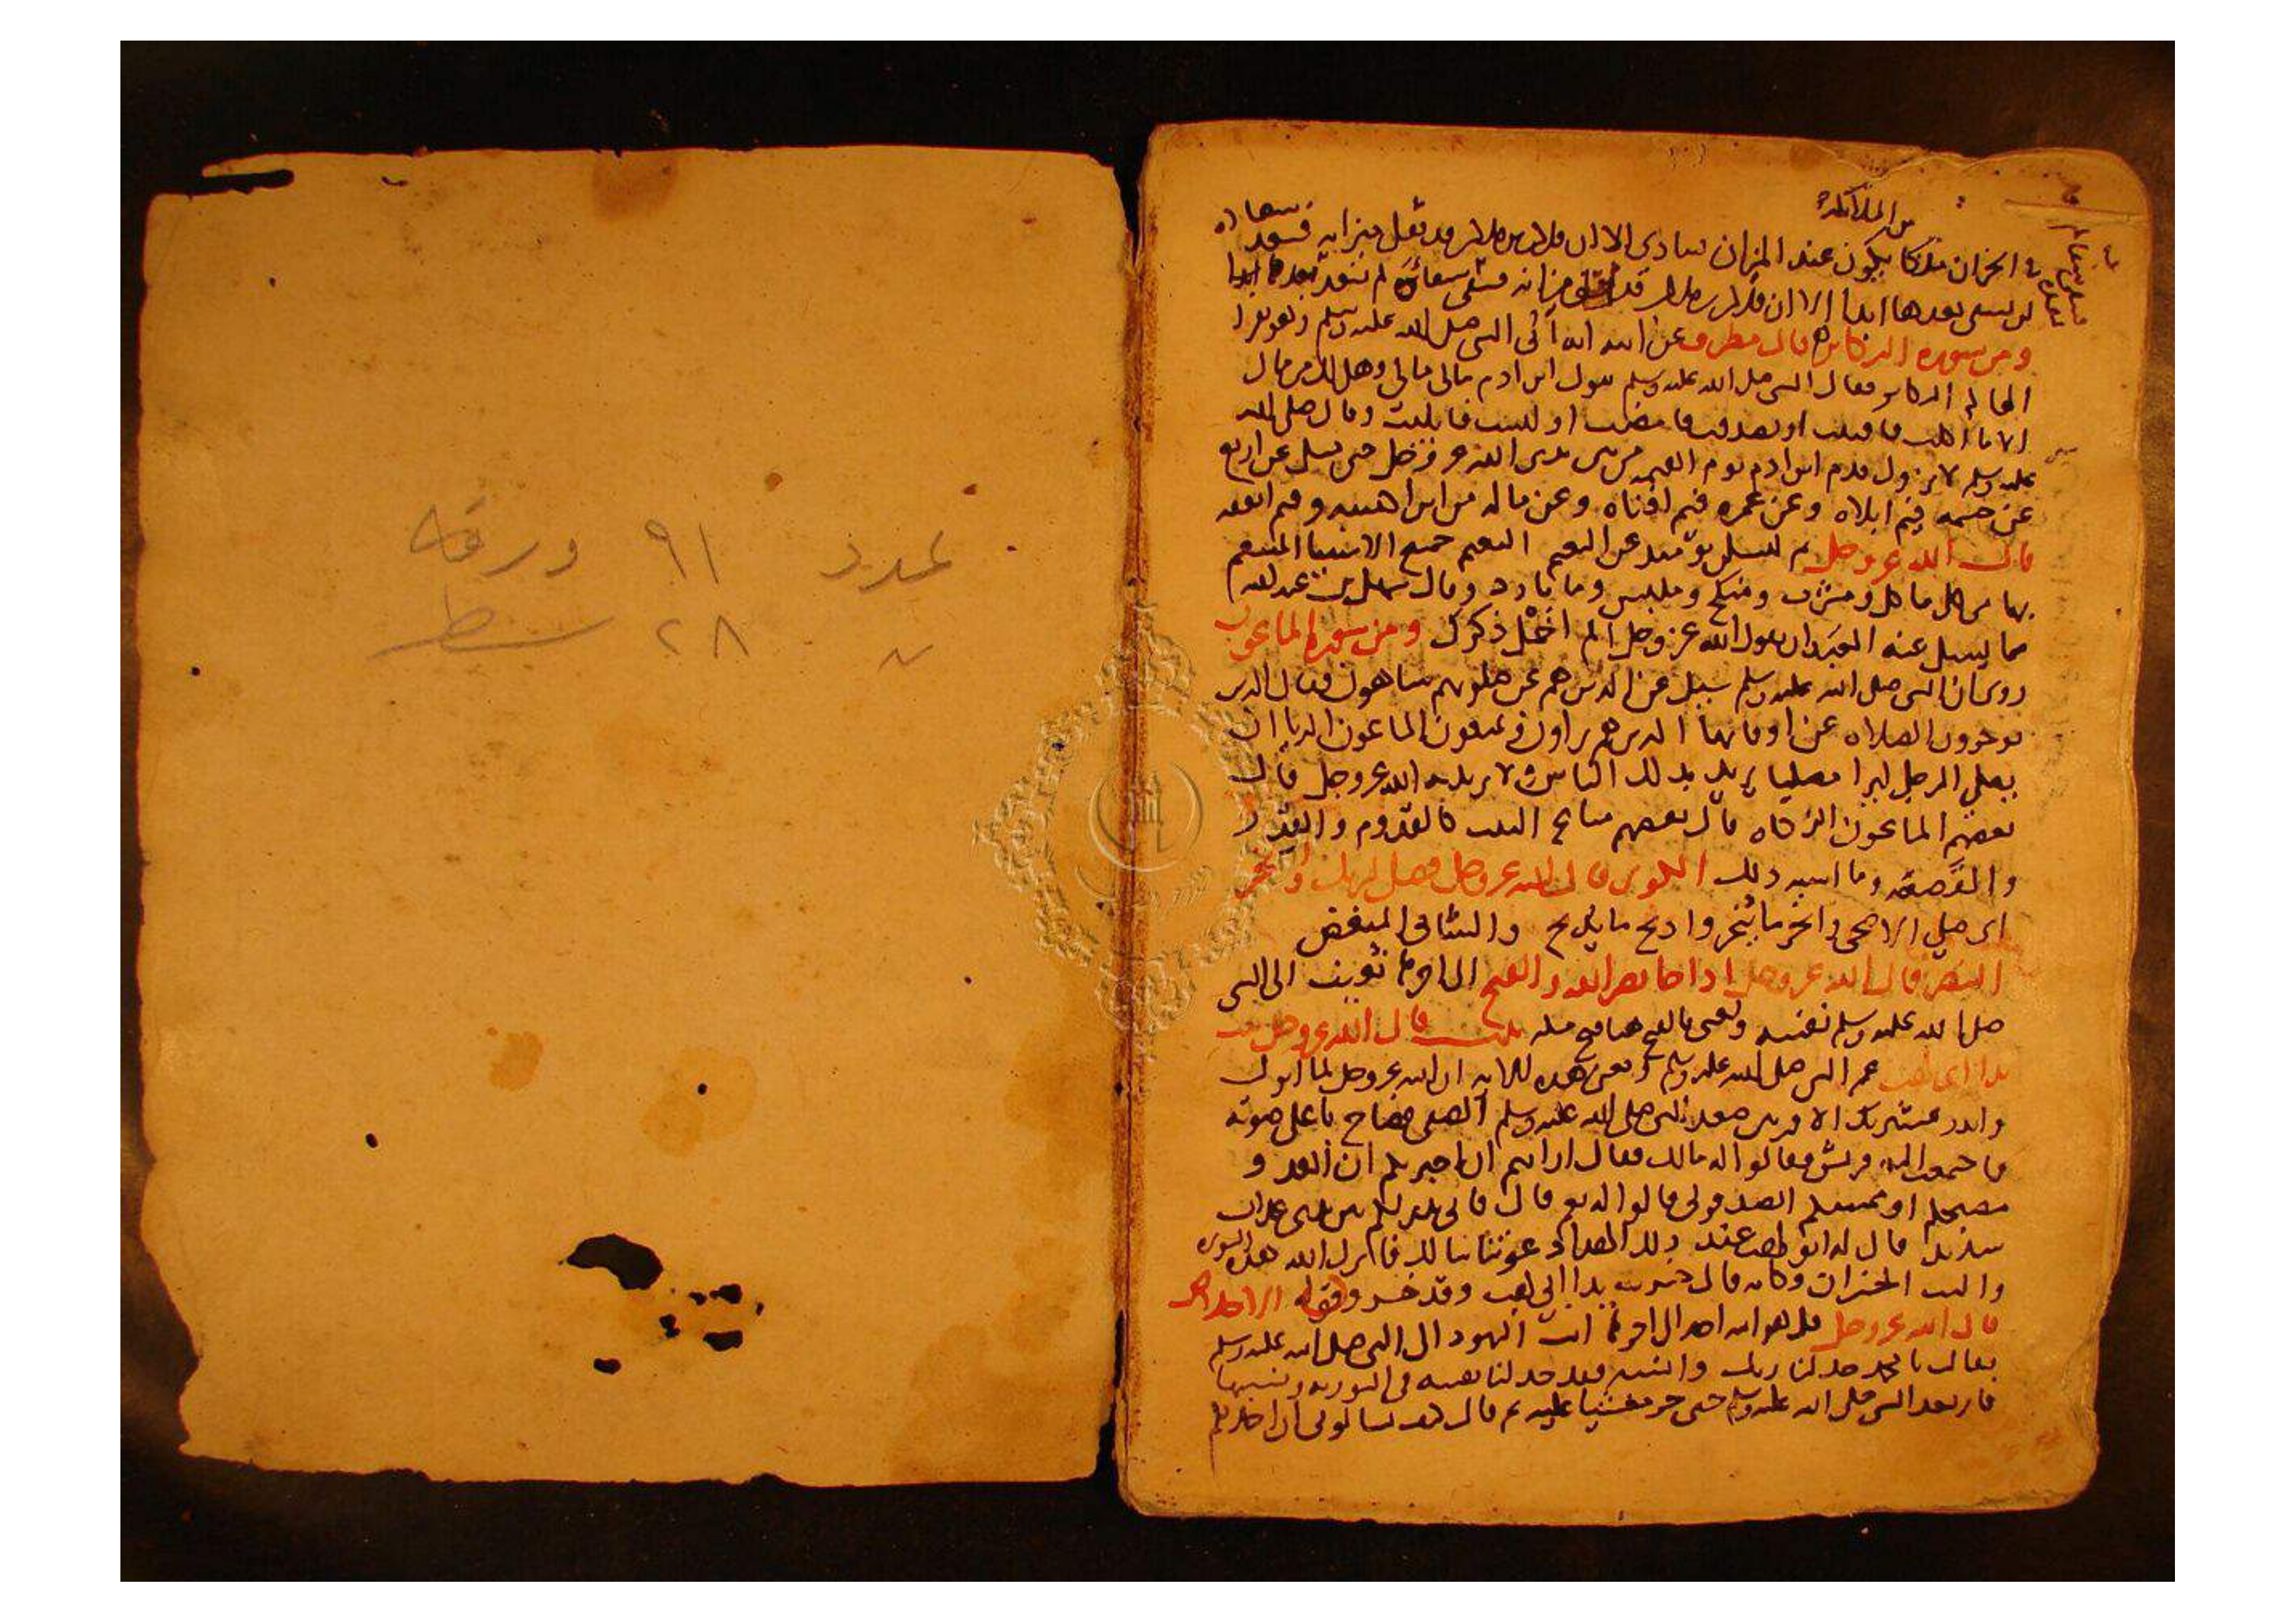 من الملائكة
في الخزان ملكا يكون عند الميزان ينادي الا ان فلان بن فلان قد ثقل ميزانه فسعد سعادة
لن يشقى بعدها ابدا الا ان فلان بن فلان قد خف ميزانه فشقى شقاوة لم يسعد بعدها ابدا
ومن سورة التكاثر قال مطرف عن ابيه انه اتى النبي صلى الله عليه وسلم وهو يقرا
الهاكم التكاثر فقال النبي صلى الله عليه وسلم يقول ابن ادم مالي مالي وهل لك من مال
الا ما اكلت فافنيت او تصدقت فامضيت او لبست فابليت وقال صلى الله
عليه وسلم لا تزول قدم ابن ادم يوم القيمه من بين يدي الله عز وجل حتى يسل عن اربع
عن جسمه فيم ابلاه وعن عمره فيم افناه وعن ماله من اين اكتسبه وفيم انفقه
قال الله عز وجل ثم لتسلن يومئذ عن النعيم النعيم جميع الاشيا المتنعم
بها من كل ماكل ومشرب ومنكح وملبس وما بارد وقال سهل بن عبد الله
مما يسيل عنه العبد ان يقول الله عز وجل الم اخمل ذكرك ومن سورة الماعون
روى ان النبي صلى الله عليه وسلم سيل عن الذين هم عن صلوتهم ساهون فقال الذين
يوخرون الصلاه عن اوقاتها الذين هم يراون ويمنعون الماعون الريا ان
يصلي الرجل ليرا مصليا يريد بذلك الناس ولا يريد به الله عز وجل قال
بعضهم الماعون الزكاه قال بعضهم متاع البيت كالقدوم والقدر
والقصعه وما اشبه ذلك الكوثر قال الله عز وجل فصل لربك وانحر
اى صلي الاضحى وانحر ما ينحر واذبح ما يذبح والشاني المبغض
النصر قال الله عز وجل اذا جا نصر الله والفتح الى اخرها نعيت الى النبي
صلى الله عليه وسلم نفسه ويعني بالفتح هنا فتح مكه تبت قال الله عز وجل تبت
يدا ابي لهب عم النبي صلى الله عليه وسلم ومعنى هذه الايه ان الله عز وجل لما انزل
وانذر عشيرتك الاقربين صعد النبي صلى الله عليه وسلم الصفى فصاح باعلى صوته
فاجتمعت اليه قريش فقالوا له مالك فقال ارايتم ان اخبرتكم ان العدو
مصبحكم او ممسيكم اتصدقوني قالوا له نعم قال فاني نذير لكم بين يدي عذاب
شديد قال له ابو لهب عند ذلك الهذا دعوتنا تبا لك فانزل الله هذه السوره
والتب الخسران وكانه قال خسرت يدا ابي لهب وقد خسر وقوله الاخلاص
قال الله عز وجل قل هو الله احد الى اخرها اتت اليهود الى النبي صلى الله عليه وسلم
فقالت يا محمد حد لنا ربك وانسبه فقد حد لنا نفسه في التوريه ونسبها
فارتعد النبي صلى الله عليه وسلم حتى خر مغشيا عليه ثم قال كيف تسالوني ان احد لكم
عدد ٩١ ورقه
٢٨ سطر